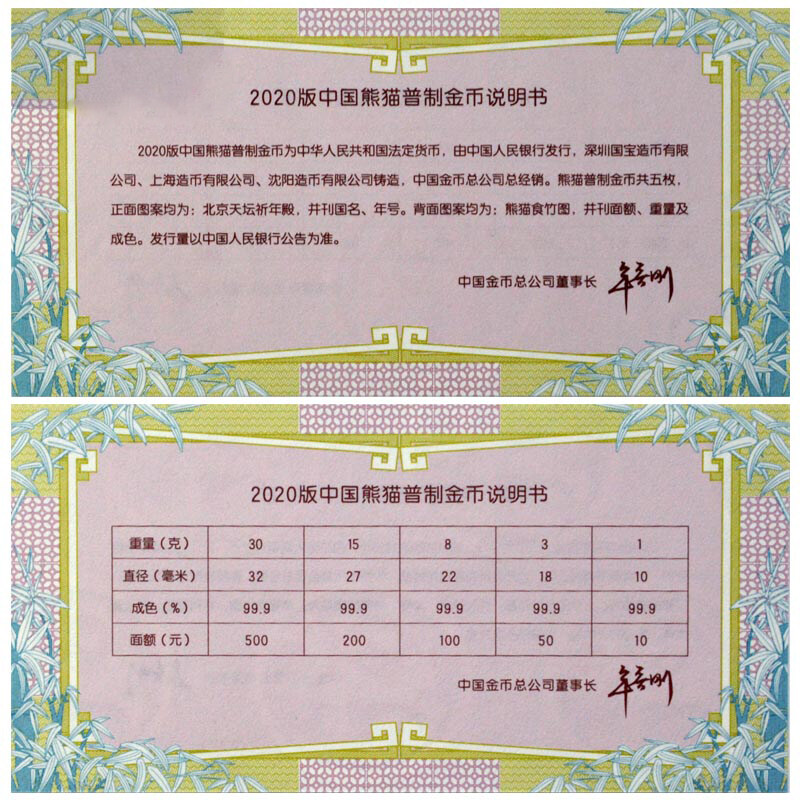 2020版中国熊猫普制金币说明书
2020版中国熊猫普制金币为中华人民共和国法定货币，由中国人民银行发行，深圳国宝造币有限
公司、上海造币有限公司、沈阳造币有限公司铸造，中国金币总公司总经销。熊猫普制金币共五枚，
正面图案均为：北京天坛祈年殿，并刊国名、年号。背面图案均为：熊猫食竹图，并刊面额、重量及
成色。发行量以中国人民银行公告为准。
中国金币总公司董事长
2020版中国熊猫普制金币说明书
重量（克） 30 15 8 3 1
直径（毫米） 32 27 22 18 10
成色（%） 99.9 99.9 99.9 99.9 99.9
面额（元） 500 200 100 50 10
中国金币总公司董事长